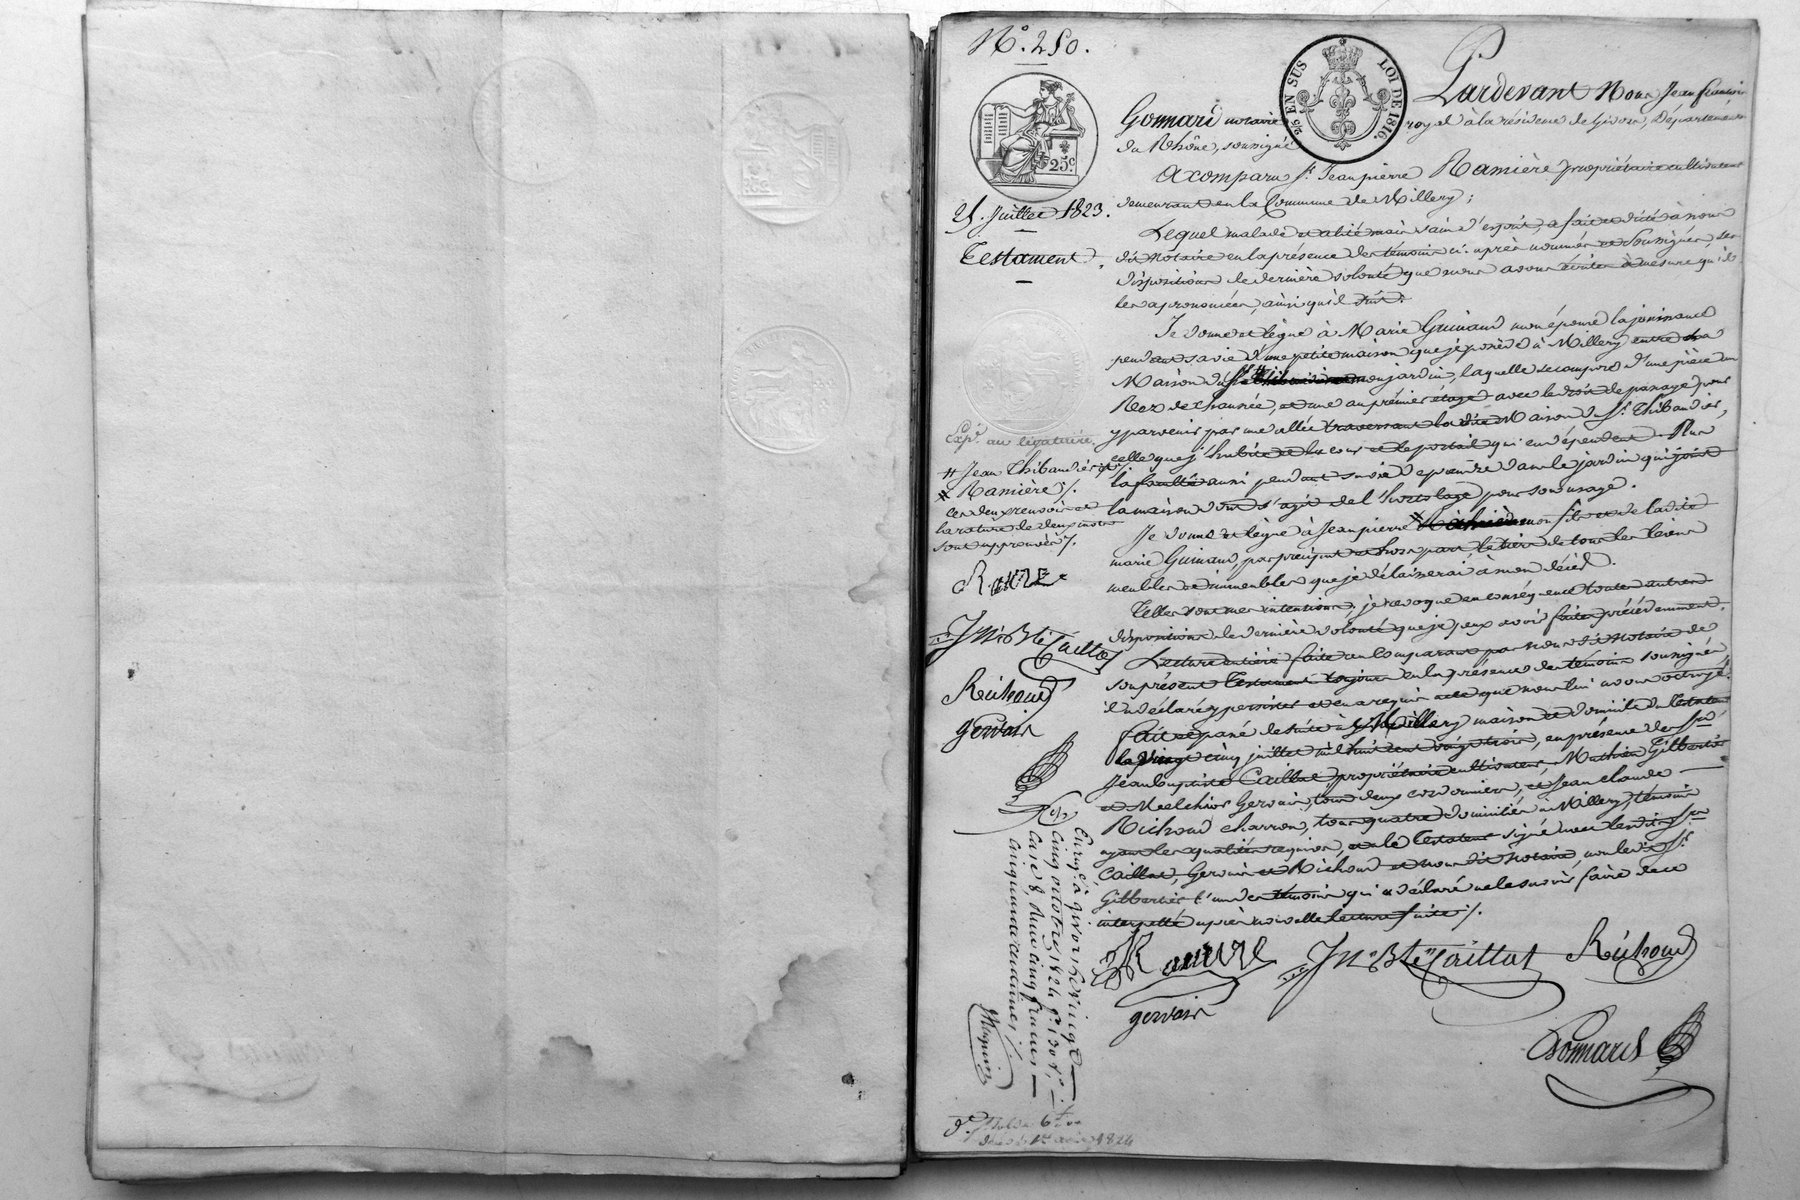 N.° 250.
25 EN SUS LOI DE 1816.
25.c
25. Juillet 1823.
Testament
Pardevant Nous Jean françois
Gonnard notaire royal à la résidence de Givors, Département
du Rhône, soussigné
A comparu s.r Jean pierre Ramière propriétaire cultivateur
demeurant en la Commune de Millery;
Lequel malade et alité mais sain d'esprit, a fait et dicté à nous
dit Notaire en la présence des témoins ci après nommés et soussignés, ses
dispositions de dernière volonté que nous avons écrites à mesure qu'il
les a prononcées, ainsi qu'il suit:
Je donne et lègue à Marie Guinand mon épouse la jouissance
pendant sa vie d'une petite maison que je possède à Millery entre la
Maison du s.r # mon jardin, laquelle se compose d'une pièce au
Rez de chaussée, et une au premier étage avec le droit de passage pour
y parvenir par une allée traversant la dite Maison du s.r Thibaudier,
celle que j'habite et la cour et le portail qui en dépendent. Plus
la faculté aussi pendant sa vie de prendre dans le jardin qui joint
la maison dont s'agit de l'hortolage pour son usage.
Je donne et lègue à Jean pierre # mon fils et de la dite
marie Guinand, par preciput et hors part, le tiers de tous les biens
meubles et immeubles que je délaisserai à mon décès.
Telles sont mes intentions, je révoque en conséquence toutes autres
dispositions de dernière volonté que je peux avoir faites précédemment.
Lecture entière faite au Comparant par nous dit Notaire de
son présent Testament toujours en la présence des témoins soussignés
il a déclaré y persister et en a requis acte que nous lui avons octroyé.
Fait et passé de suite à Millery maison et domicile du testateur
le vingt cinq juillet mil huit cent vingt trois, en présence de s.rs
Jean baptiste Caillat, propriétaire cultivateur, Mathieu Gilbertier
et Melchior Gervais, tous deux cordonniers, et Jean claude
Richoud charron, tous quatre domiciliés à Millery, témoins
ayant les qualités requises, et le Testateur signé avec les dits s.rs
Caillat, Gervais et Richoud et nous dit Notaire, non le dit s.r
Gilbertier l'un des témoins qui a déclaré ne le savoir faire de ce
interpellé après nouvelle lecture faite ./.
Jn Bte Caillat Richoud
gervais
Gonnard
Exp.é au légataire.
# Jean Thibaudier et
# Ramière ./.
Ces deux renvois et
la rature de deux mots
sont approuvés ./.
Jn Bte Caillat
Richoud
gervais
Enreg.é à givors le vingt
cinq octobre 1824 f.o 130 r.o
case 8 Reçu cinq francs
cinquante centimes ./.
1824